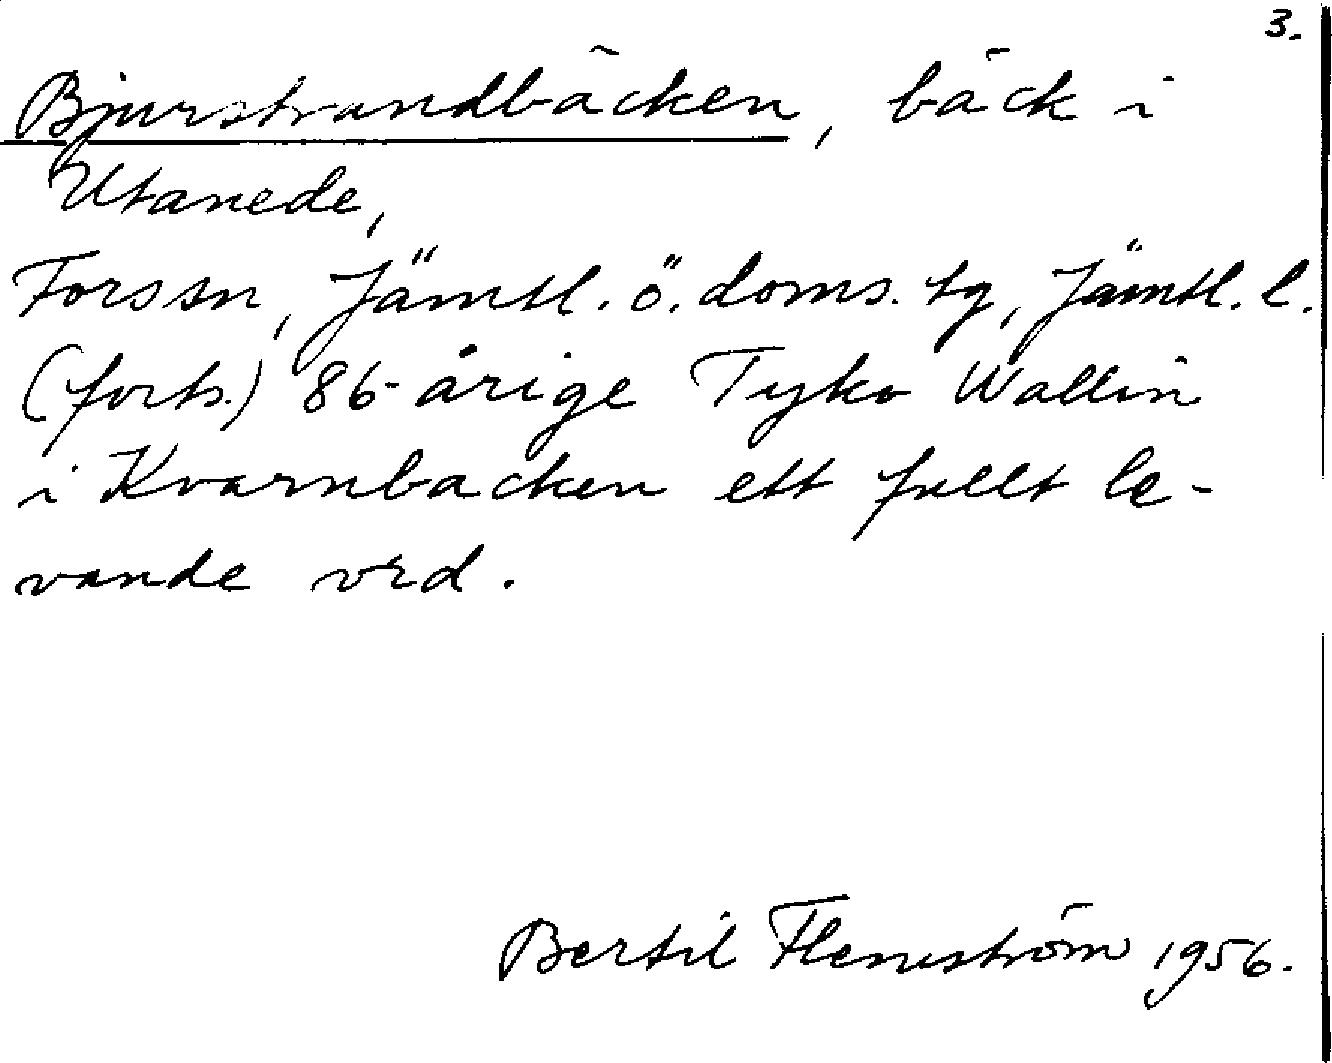 3.
Bjurstrandbäcken, bäck i
Utanede,
Forssn, Jämtl. ö. doms. tg, Jämtl. l.
(forts.) 86-årige Tyko Wallin
i Kvarnbacken ett fullt le-
vande ord.
Bertil Flemström 1956.